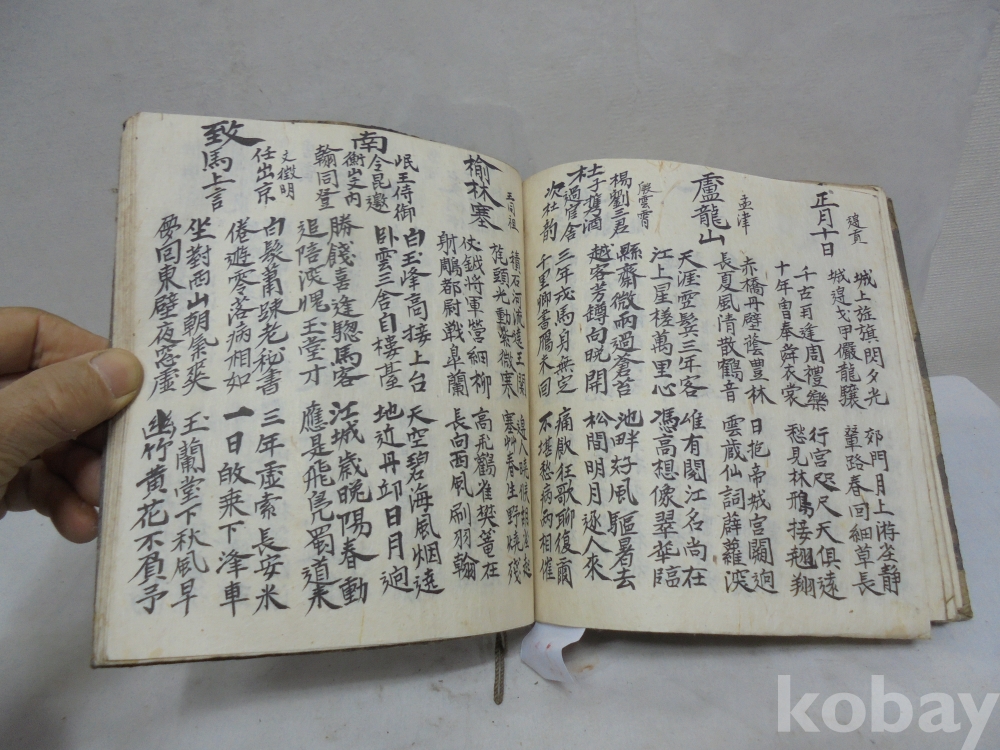 正月十日
城上旌旗閃夕光 郊門月上游筌靜
城邊戈甲儼龍驤 輦路春回細草長
千古再逢周禮樂 行宮咫尺天俱遠
十年曾奉舜衣裳 愁見林鴉接翅翔
盧龍山
孟津
赤橋丹壁蔭豊林 日抱帝城宮闕迥
長夏風清散鶴音 雲藏仙詞薜蘿深
天涯雲鬂三年客 維有閱江名尚在
江上星槎萬里心 馮高想像翠華臨
楊劉三君
杜子攜酒
過官舍
次杜韵
殷雲霄
縣齋微雨過蒼苔 池畔好風驅暑去
越客芳罇向晚開 松間明月逐人來
三年戎馬身無定 痛飲狂歌聊復爾
千里鄉書鴈未回 不堪愁病兩相催
榆林塞
積石河流遶玉關
旄頭光動紫微寒 寒艸春生野燒殘
仗鉞將軍營細柳 高飛鸛雀樊籠在
射鵰都尉戰臯蘭 長向西風刷羽翰
岷王侍御
令昆邀
南
衡山文內
翰同登
白玉峰高接上台 天空碧海風烟遠
臥雲三舍自樓臺 地近丹丘日月迥
勝餞喜逢驄馬客 江城歲晚陽春動
追陪深愧玉堂才 應是飛鳧蜀道來
致
任出京
馬上言
文徵明
白髮蕭疎老秘書 三年虛索長安米
倦遊零落病相如 一日故乘下澤車
坐對西山朝氣爽 玉蘭堂下秋風早
夢回東壁夜窓虛 幽竹黄花不負予
kobay